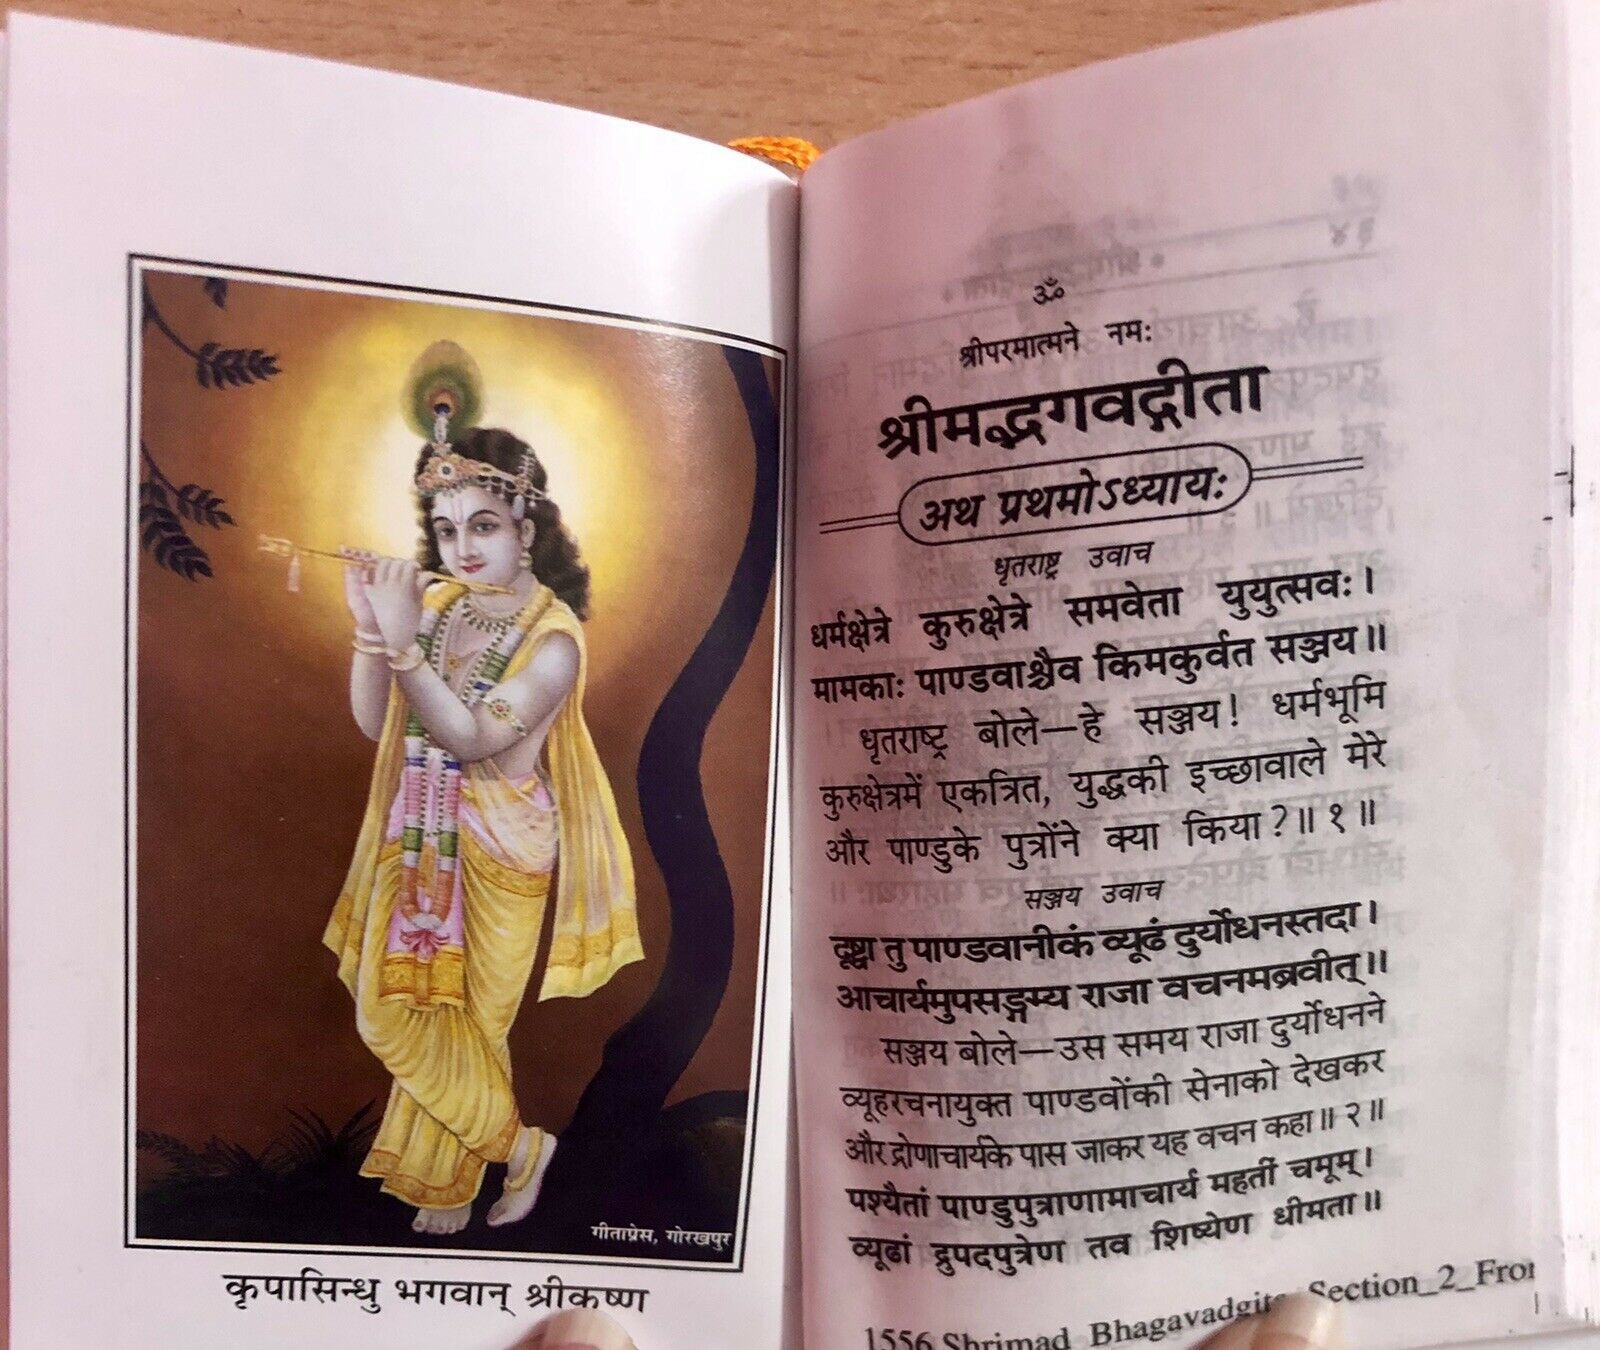 गीताप्रेस, गोरखपुर
कृपासिन्धु भगवान् श्रीकष्ण
ॐ
श्रीपरमात्मने नमः
श्रीमद्भगवद्गीता
अथ प्रथमोऽध्यायः
धृतराष्ट्र उवाच
धर्मक्षेत्रे कुरुक्षेत्रे समवेता युयुत्सवः।
मामकाः पाण्डवाश्चैव किमकुर्वत सञ्जय॥
धृतराष्ट्र बोले—हे सञ्जय! धर्मभूमि
कुरुक्षेत्रमें एकत्रित, युद्धकी इच्छावाले मेरे
और पाण्डुके पुत्रोंने क्या किया?॥ १॥
सञ्जय उवाच
दृष्ट्वा तु पाण्डवानीकं व्यूढं दुर्योधनस्तदा।
आचार्यमुपसङ्गम्य राजा वचनमब्रवीत्॥
सञ्जय बोले—उस समय राजा दुर्योधनने
व्यूहरचनायुक्त पाण्डवोंकी सेनाको देखकर
और द्रोणाचार्यके पास जाकर यह वचन कहा॥ २॥
पश्यैतां पाण्डुपुत्राणामाचार्य महतीं चमूम्।
व्यूढां द्रुपदपुत्रेण तव शिष्येण धीमता॥
1556 Shrimad_Bhagavadgita_Section_2_Fron